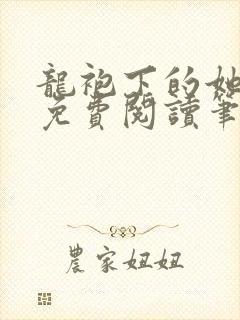 龍袍下的她
免費閱讀筆
農家妞妞